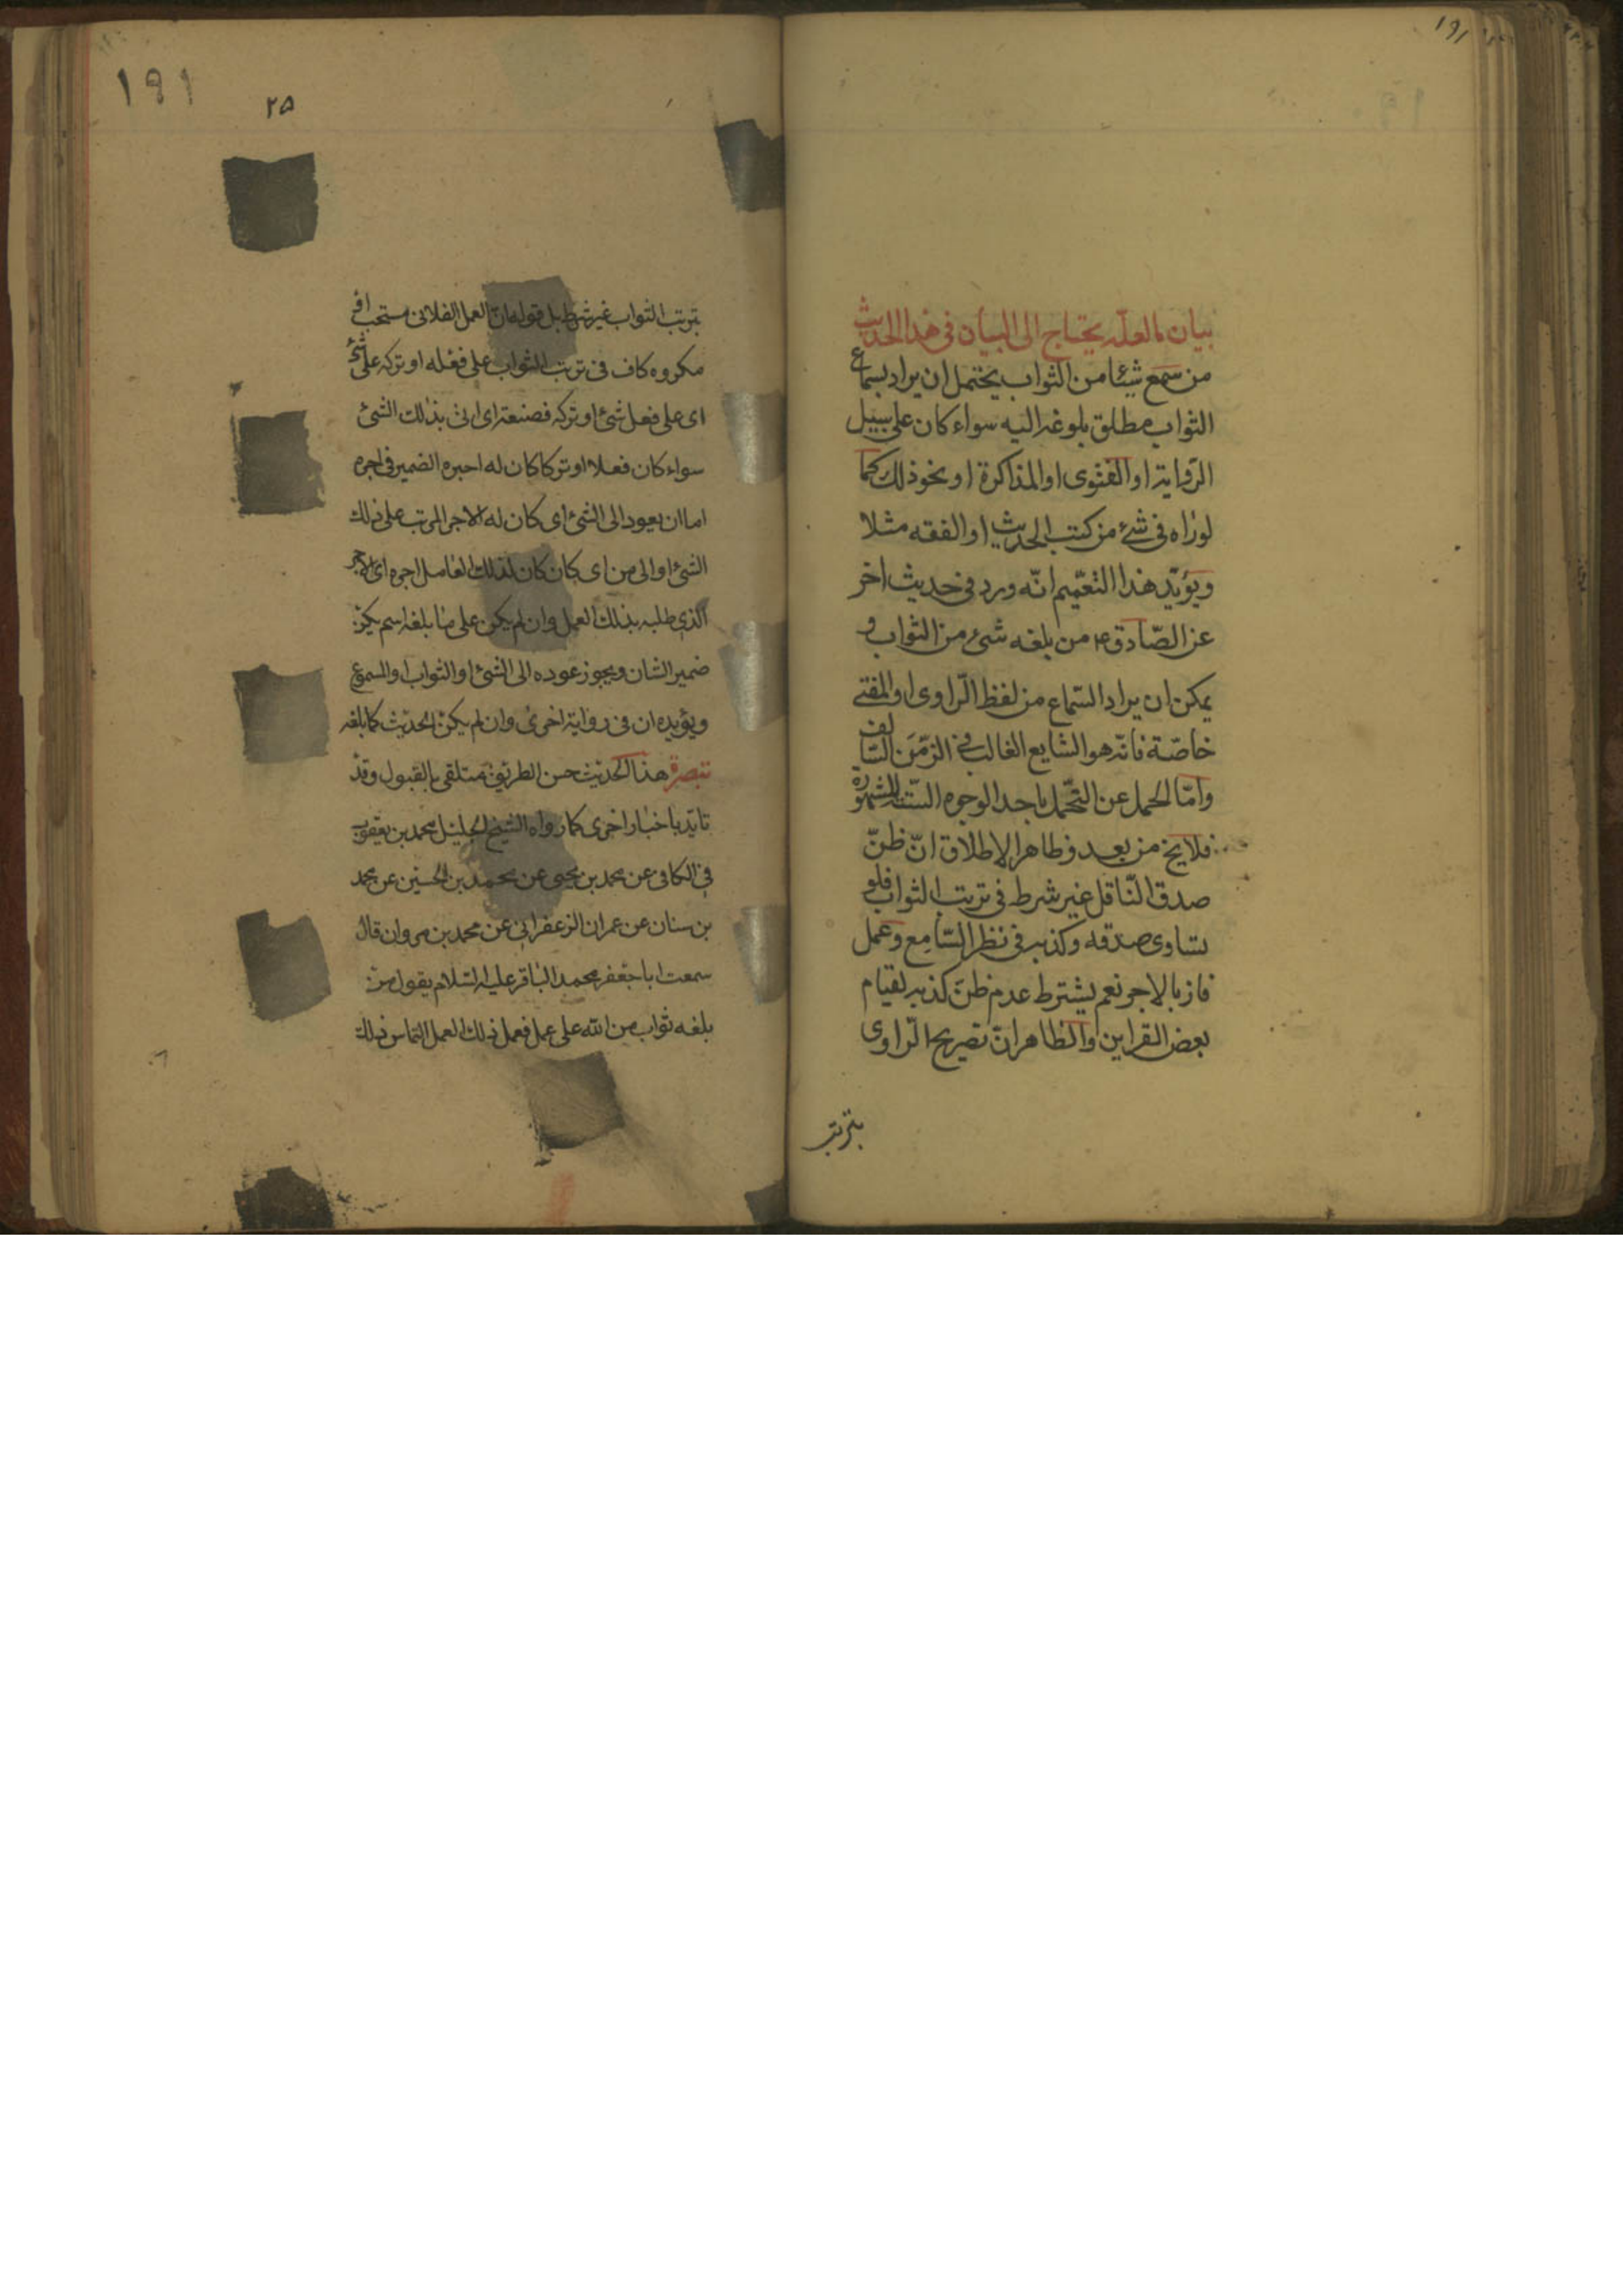 ١٩١
بيان لما لعله يحتاج الى البيان فى هذا الحديث
من سمع شيئا من الثواب يحتمل ان يراد بسماع
الثواب مطلق بلوغه اليه سواء كان على سبيل
الرّواية او الفتوى او المذاكرة او نحو ذلك كما
لو رآه فى شئ من كتب الحديث او الفقه مثلا
ويؤيّد هذا التعميم انّه ورد فى حديث اخر
عن الصّادق ع من بلغه شئ من الثواب و
يمكن ان يراد السّماع من لفظ الرّاوى او المفتى
خاصّة فانّه هو الشايع الغالب فى الزّمن السّالف
وامّا الحمل عن التحّمل باحد الوجوه الستّة المشهورة
فلا يخ من بعد و ظاهر الاطلاق انّ ظنّ
صدق النّاقل غير شرط فى ترتب الثواب فلو
تساوى صدقه وكذبه فى نظر السّامع وعمل
فاز بالاجر نعم يشترط عدم ظنّ كذبه لقيام
بعض القراين والظاهر انّ تصريح الرّاوى
بترتب
١٩١
٢۵
بترتب الثواب غير شرط بل قوله انّ العمل الفلانى مستحب او
مكروه كاف فى ترتب الثواب على فعله او تركه على شئ
اى على فعل شئ او تركه فصنعه اى اتى بذلك الشئ
سواء كان فعلا او تركا كان له اجره الضمير فى اجره
اما ان يعود الى الشئ اى كان له الاجر المرتب على ذلك
الشئ او الى من اى كان كان لذلك العامل اجره اى الاجر
الذى طلبه بذلك العمل وان لم يكن على ما بلغه اسم يكن
ضمير الشان ويجوز عوده الى الشئ او الثواب او المسموع
ويؤيده ان فى رواية اخرى وان لم يكن الحديث كما بلغه
تبصرة هذا الحديث حسن الطريق متلقى بالقبول وقد
تايّد باخبار اخرى كما رواه الشيخ الجليل محمد بن يعقوب
فى الكافى عن محمد بن يحيى عن محمد بن الحسين عن محمد
بن سنان عن عمران الزعفرانى عن محمد بن مروان قال
سمعت ابا جعفر محمد الباقر عليه السّلام يقول من
بلغه ثواب من الله على عمل فعمل ذلك العمل التماس ذلك